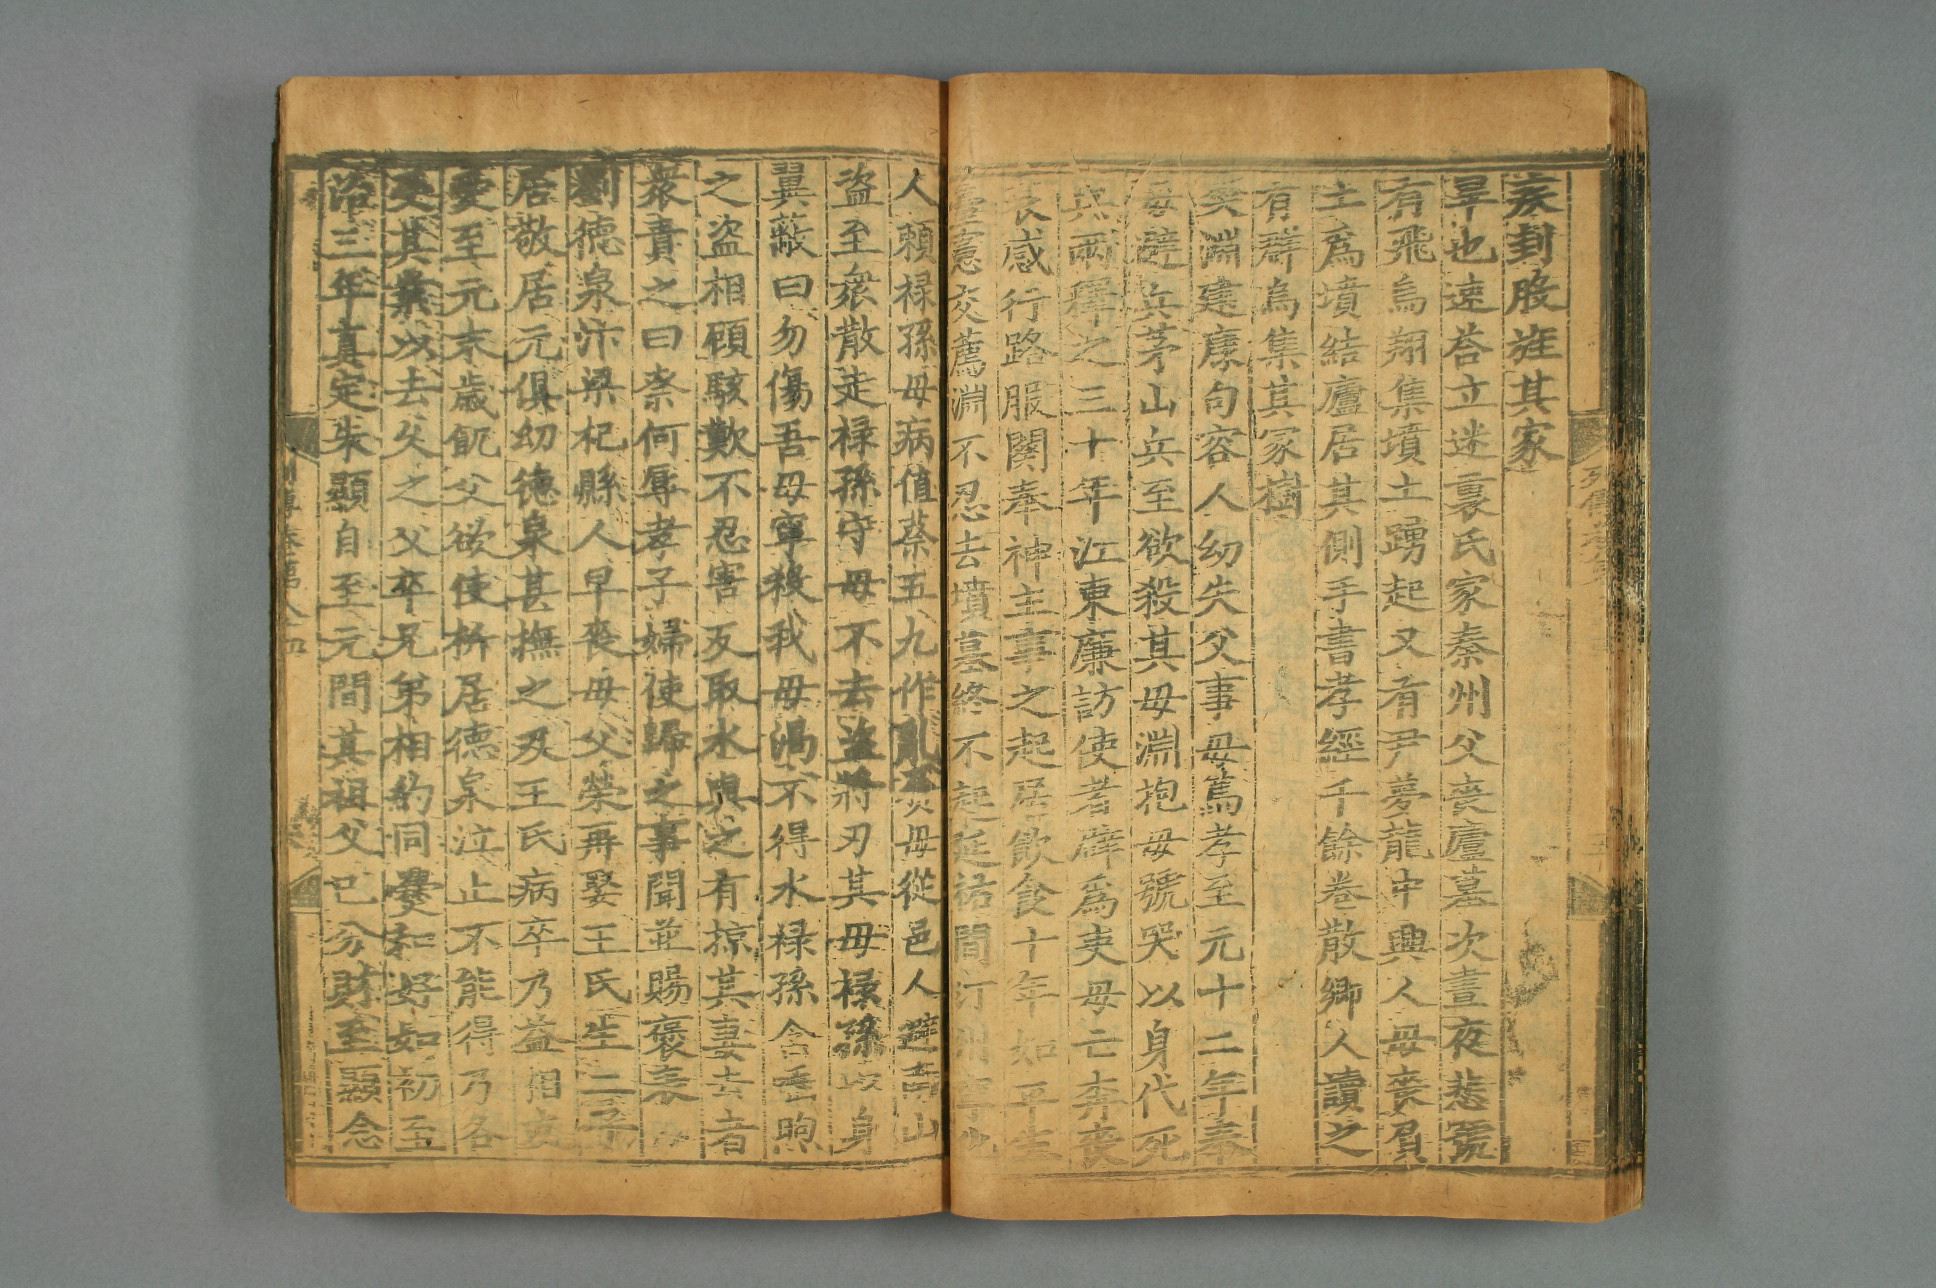 疾刲股旌其家
旱也速荅立迷裏氏家秦州父喪廬墓次晝夜悲號
有飛烏翔集墳土踴起又有尹夢龍中興人母喪負
土爲墳結廬居其側手書孝經千餘卷散鄉人讀之
有群烏集其冢樹
樊淵建康句容人幼失父事母篤孝至元十二年奉
母避兵茅山兵至欲殺其母淵抱母號哭以身代死
兵兩釋之三十年江東廉訪使者辟爲吏母亡奔喪
哀感行路服闋奉神主事之起居飲食十年如平生
臺憲交薦淵不忍去墳墓終不起延祐間汀州寧化
人賴祿孫母病值蔡五九作亂負母從邑人避南山
盜至衆散走祿孫守母不去盜將刃其母祿孫以身
翼蔽曰勿傷吾母寧殺我母渴不得水祿孫含唾煦
之盜相顧駭歎不忍害反取水與之有掠其妻去者
衆責之曰柰何辱孝子婦使歸之事聞並賜褒表
劉德泉汴梁杞縣人早喪母父榮再娶王氏生二子
居敬居元俱幼德泉甚撫之及王氏病卒乃益相友
愛至元末歲飢父欲使析居德泉泣止不能得乃各
受其業以去久之父卒兄弟相約同爨和好如初至
治三年真定朱顯自至元間其祖父已分財至顯念
列傳卷第八十四